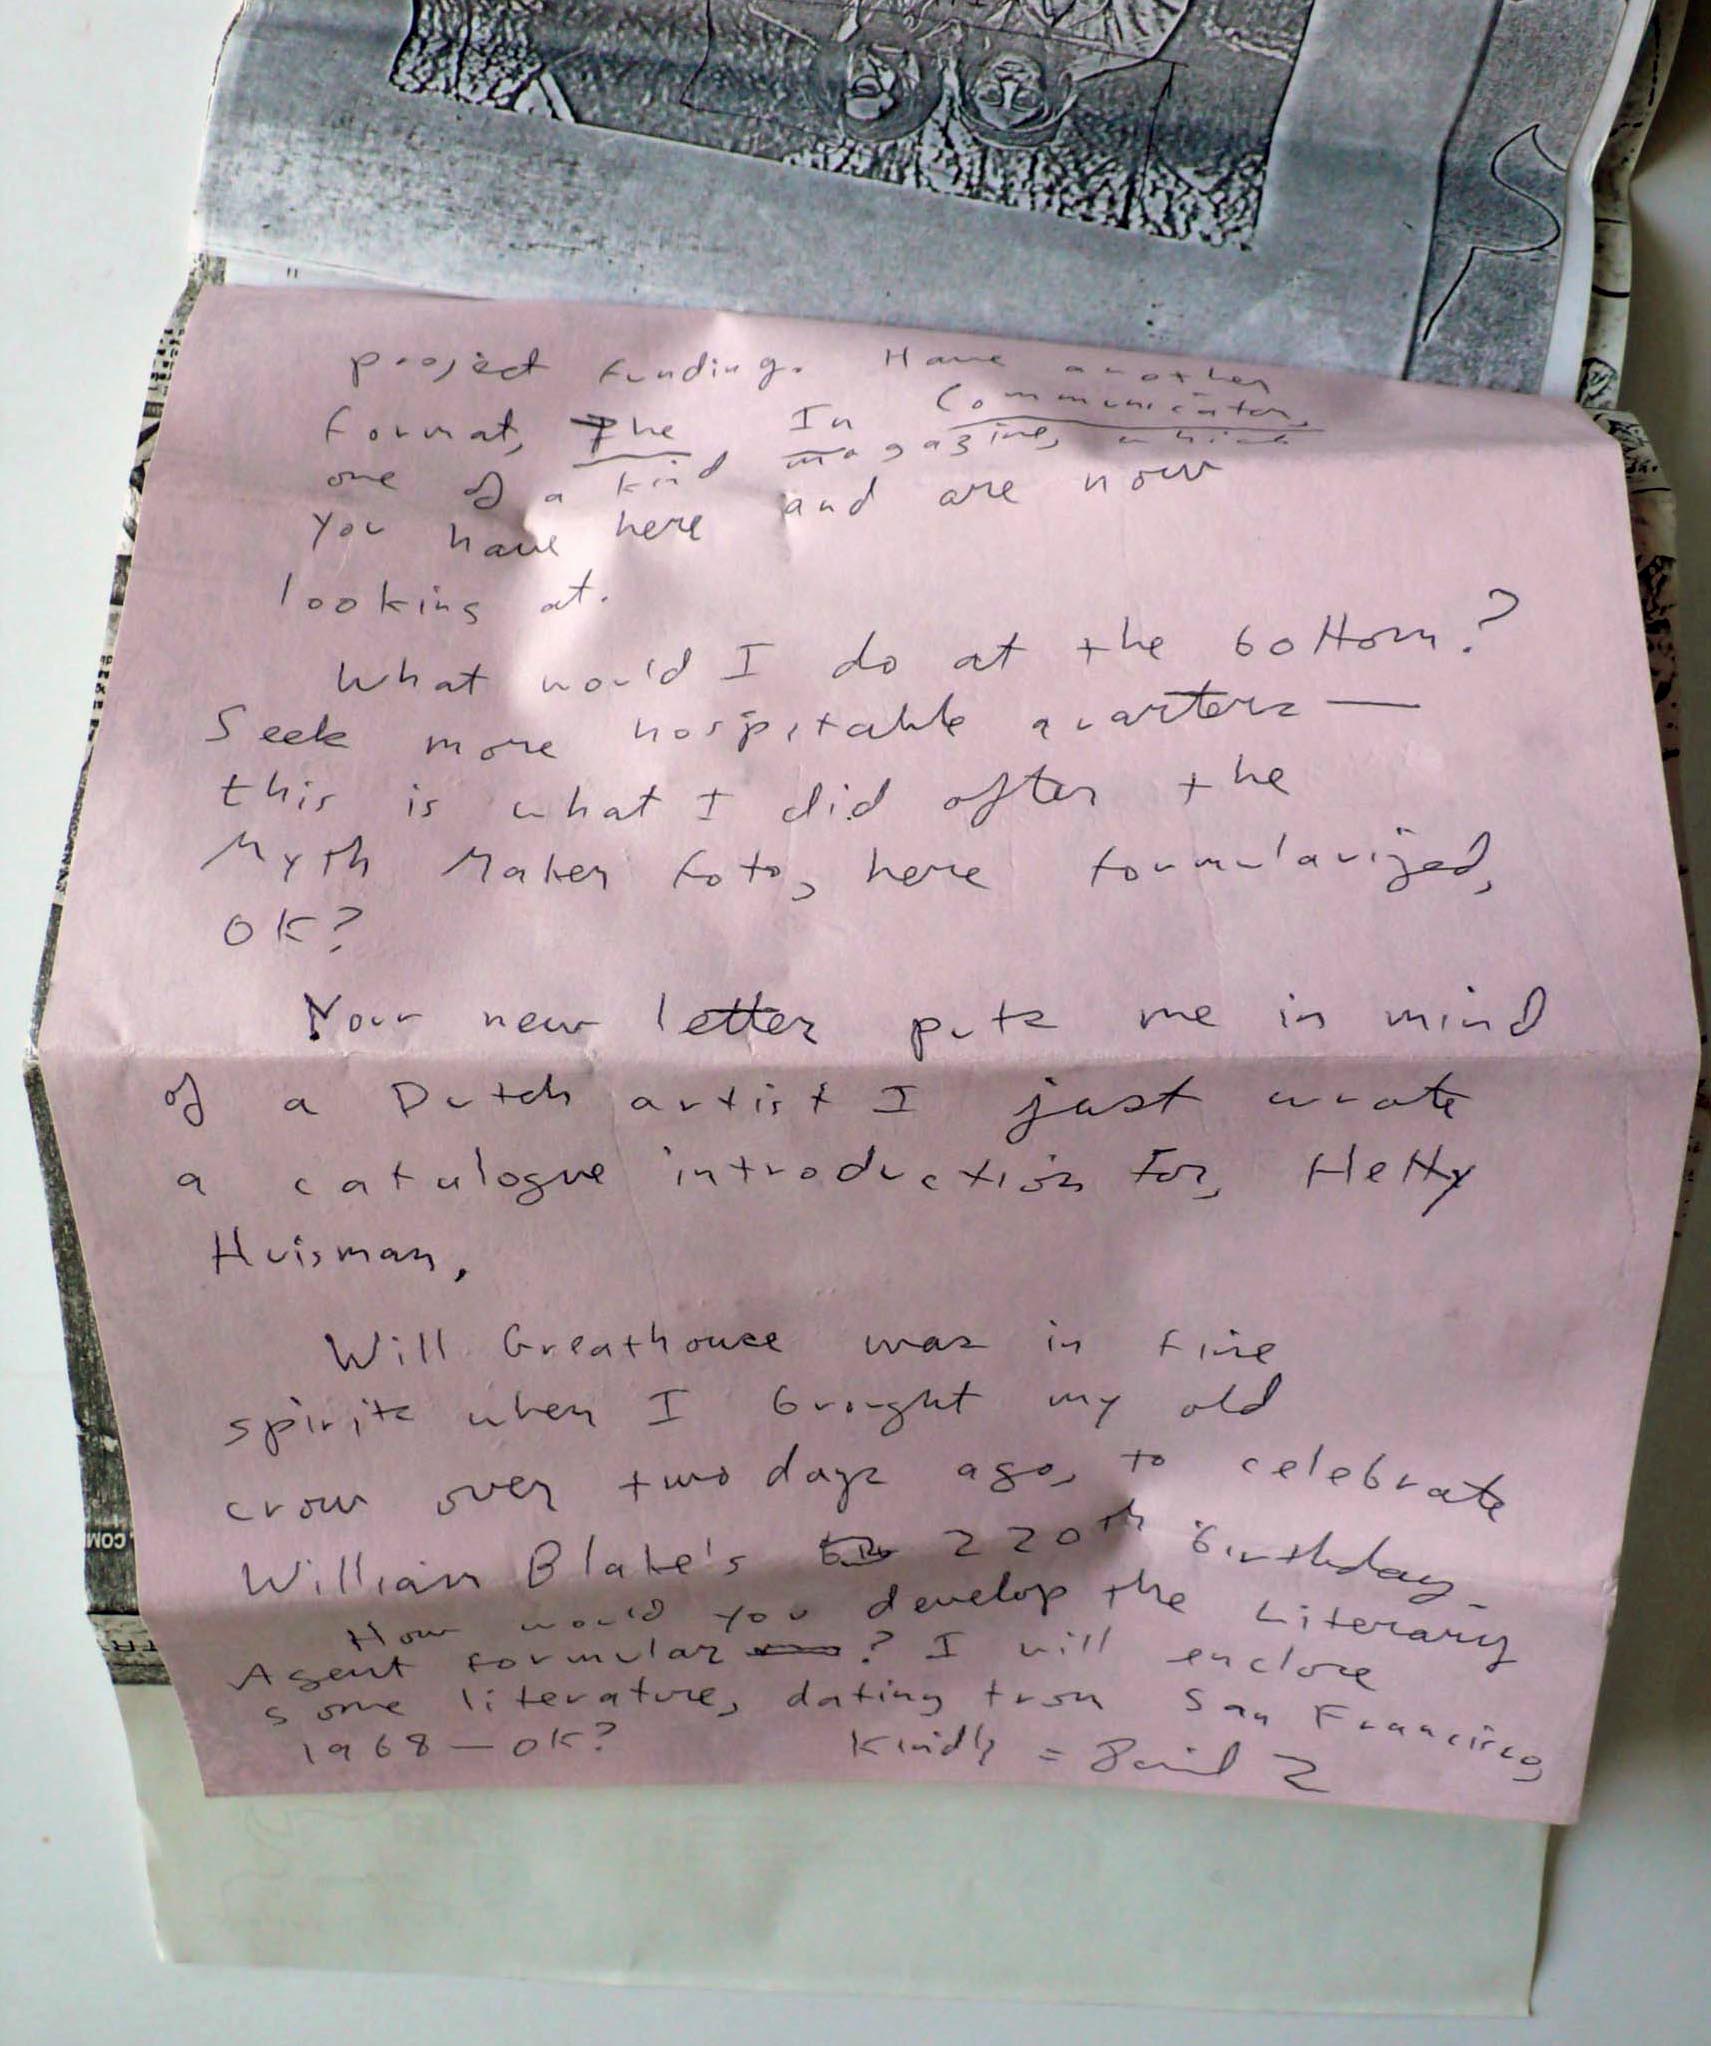 project funding. Have another
format, The In Communicator,
one of a kind magazine, which
you have here and are now
looking at.
What would I do at the bottom?
Seek more hospitable quarters —
this is what I did after the
Myth Maker foto, here formularized,
OK?
Your new letter puts me in mind
of a Dutch artist I just wrote
a catalogue introduction for, Hetty
Huisman.
Will Greathouse was in fine
spirits when I brought my old
crow over two days ago, to celebrate
William Blake's 220th birthday.
How would you develop the Literary
Agent formular ? I will enclose
some literature, dating from San Francisco,
1968 — OK? Kindly =
COM